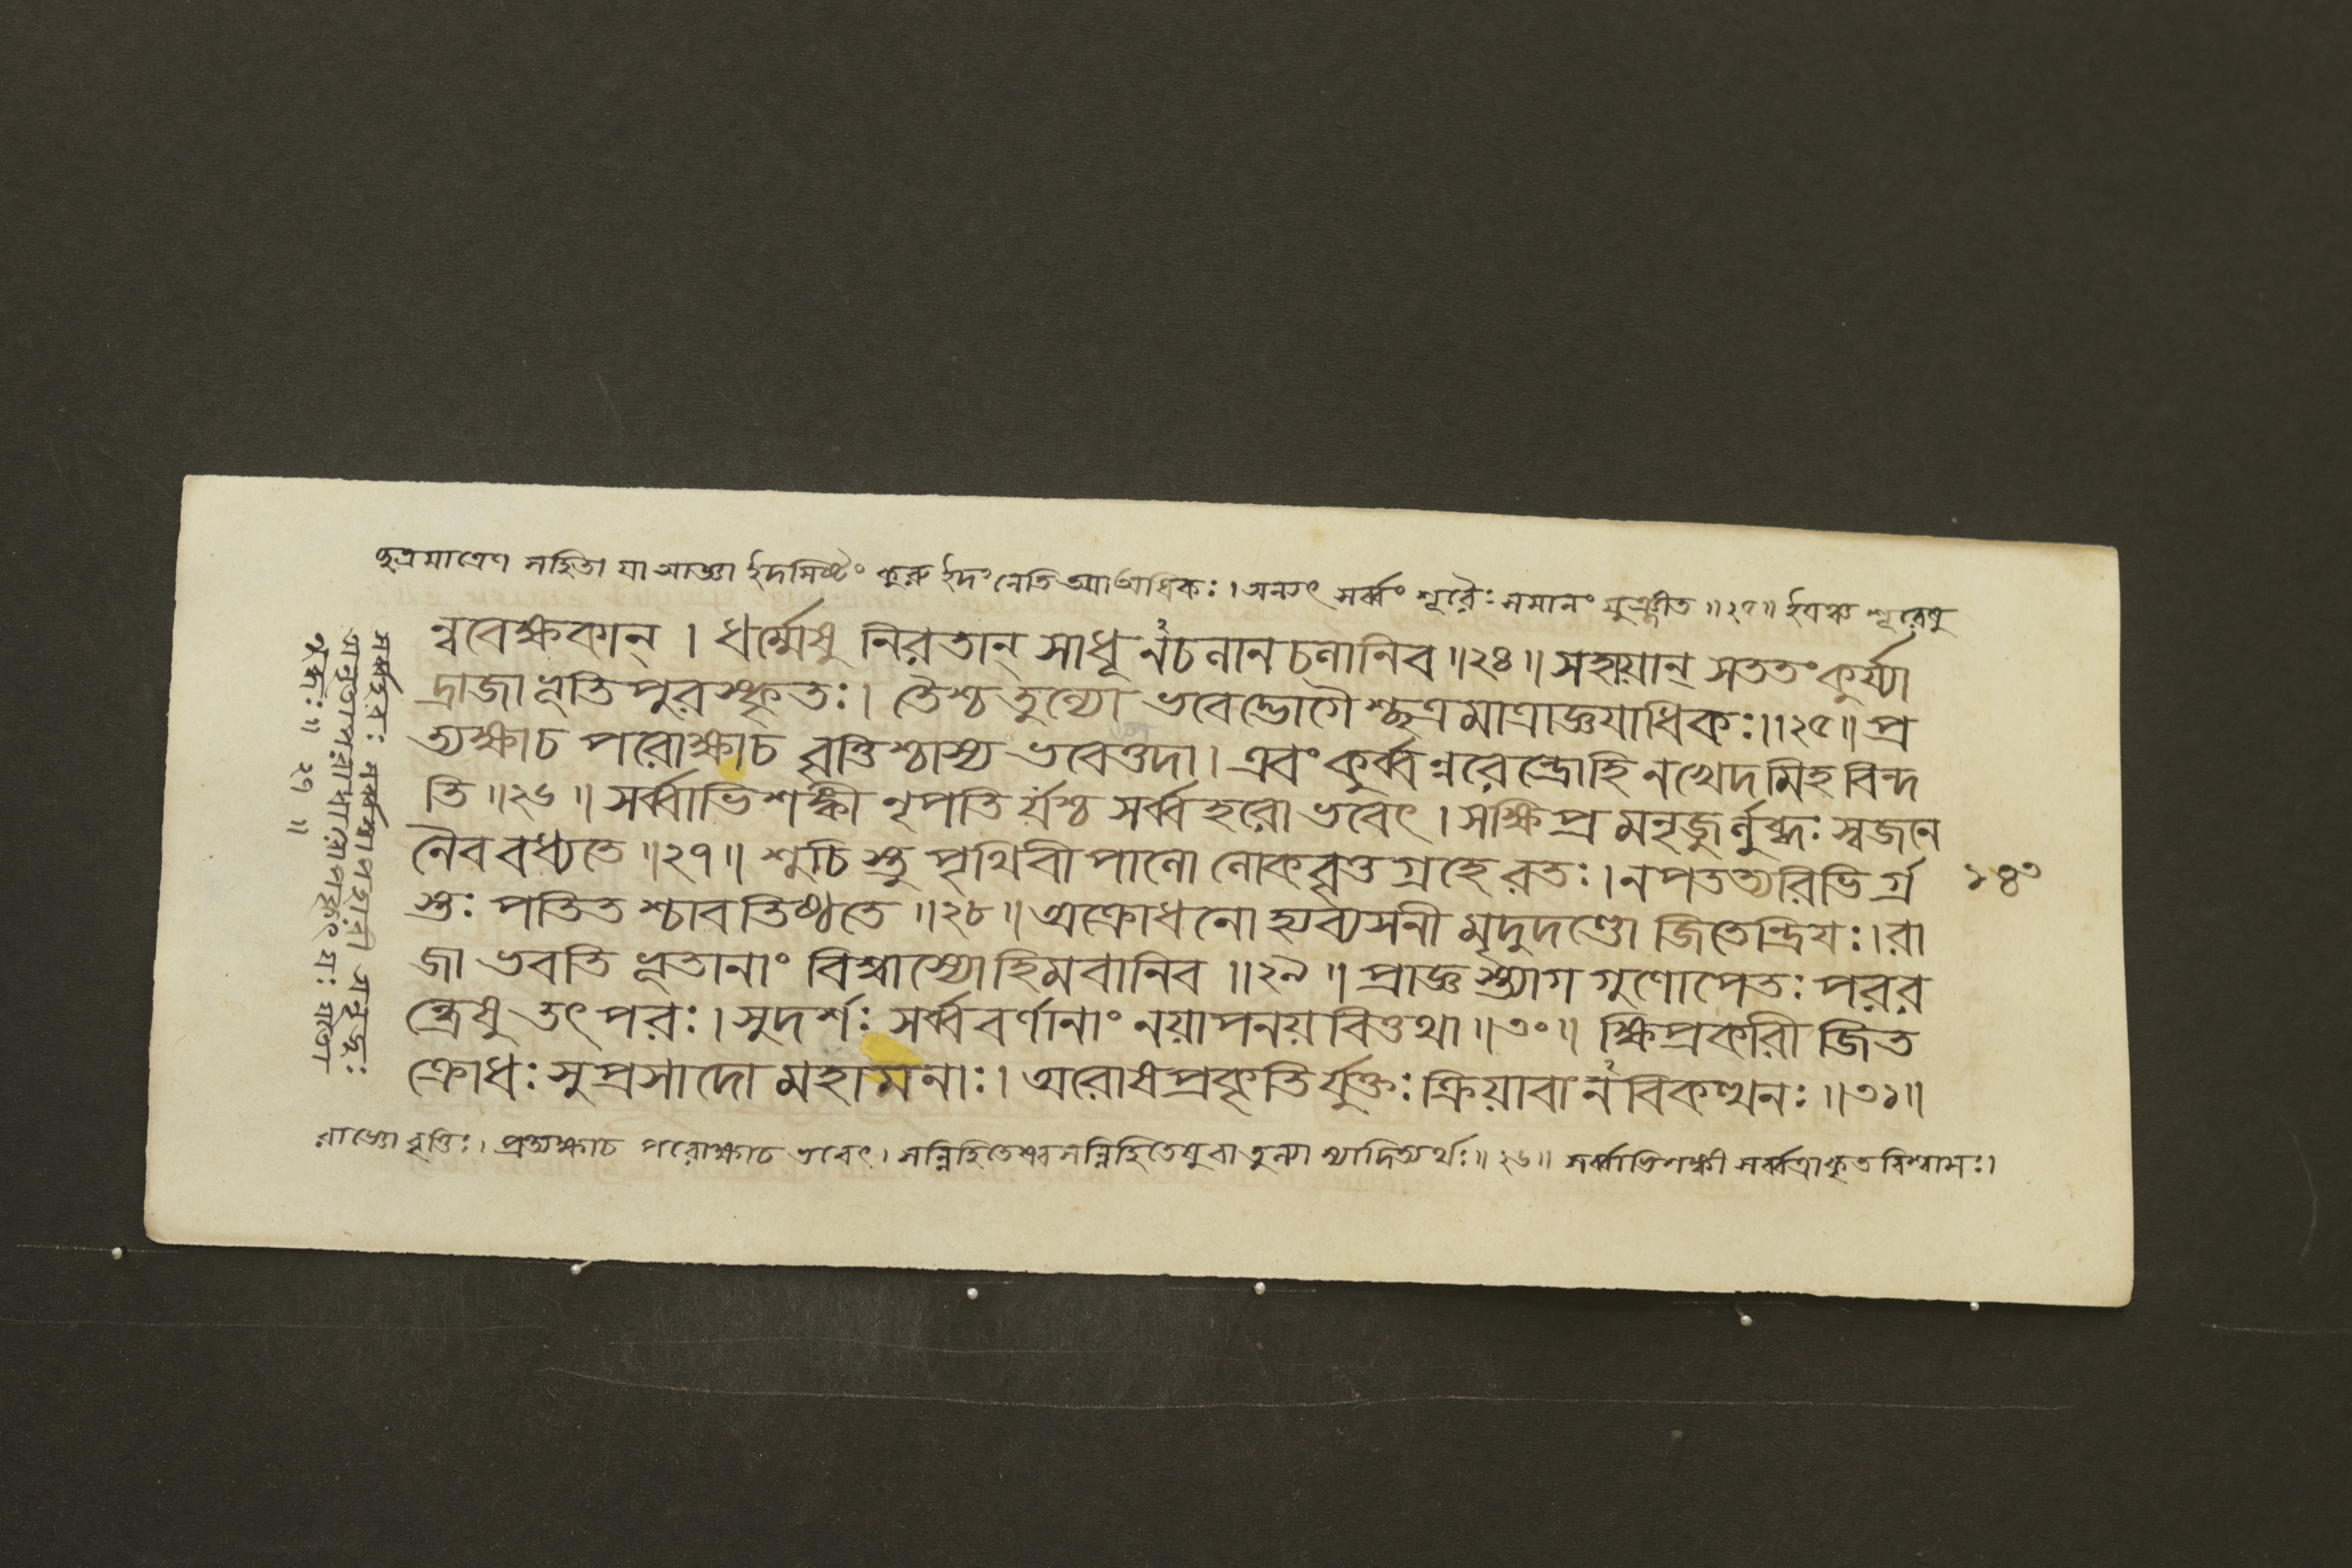 চ্ছত্রমাত্রেণ সহিতা যা আজ্ঞা ইদমিষ্টং কুরু ইদং নেতি তয়া অধিকঃ। অন্যৎ সর্ব্বং শূরৈঃ সমানং মুঞ্জীত ॥২৫॥ ইয়ঞ্চ শূরেষু
ন্ববেক্ষকান্ । ধর্ম্মেষু নিরতান্ সাধূনচলানচলানিব ॥২৪॥ সহায়ান্ সততং কুর্য্যা
দ্রাজা ভূতিপুরস্কৃতঃ। তৈশ্চ তুল্যো ভবেদ্ভোগৈশ্ছত্রমাত্রাজ্ঞয়াধিকঃ॥২৫॥ প্র
ত্যক্ষাচ পরোক্ষাচ বৃত্তিশ্চাস্য ভবেত্তদা। এবং কুর্ব্বন্নরেন্দ্রোহি নখেদমিহ বিন্দ
তি ॥২৬॥ সর্ব্বাভিশঙ্কী নৃপতির্যশ্চ সর্ব্বহরো ভবেৎ। সক্ষিপ্রমনৃজুর্লুব্ধঃ স্বজনে
নৈব বধ্যতে ॥২৭॥ শুচিস্তু পৃথিবীপালো লোকবৃত্তগ্রহে রতঃ। নপতত্যরিভির্গ্র
স্তঃ পতিতশ্চাবতিষ্ঠতে ॥২৮॥ অক্রোধনো হ্যব্যসনী মৃদুদণ্ডো জিতেন্দ্রিয়ঃ। রা
জা ভবতি ভূতানাং বিশ্বাস্যো হিমবানিব ॥২৯॥ প্রাজ্ঞস্ত্যাগগুণোপেতঃ পরর
ন্ধ্রেষু তৎপরঃ। সুদর্শঃ সর্ব্ববর্ণানাং নয়াপনয়বিত্তথা ॥৩০॥ ক্ষিপ্রকারী জিত
ক্রোধঃ সুপ্রসাদো মহামনাঃ। অরোষপ্রকৃতির্যুক্তঃ ক্রিয়াবানবিকত্থনঃ ॥৩১॥
রাজ্ঞো বৃত্তিঃ। প্রত্যক্ষাচ পরোক্ষাচ ভবেৎ। সন্নিহিতেষ্বসন্নিহিতেষু বা তুল্যা স্যাদিত্যর্থঃ॥২৬॥ সর্ব্বাভিশঙ্কী সর্ব্বত্রাকৃতবিশ্বাসঃ।
সর্ব্বহরঃ সর্ব্বস্বাপহারী
॥২৭॥
১৪৩